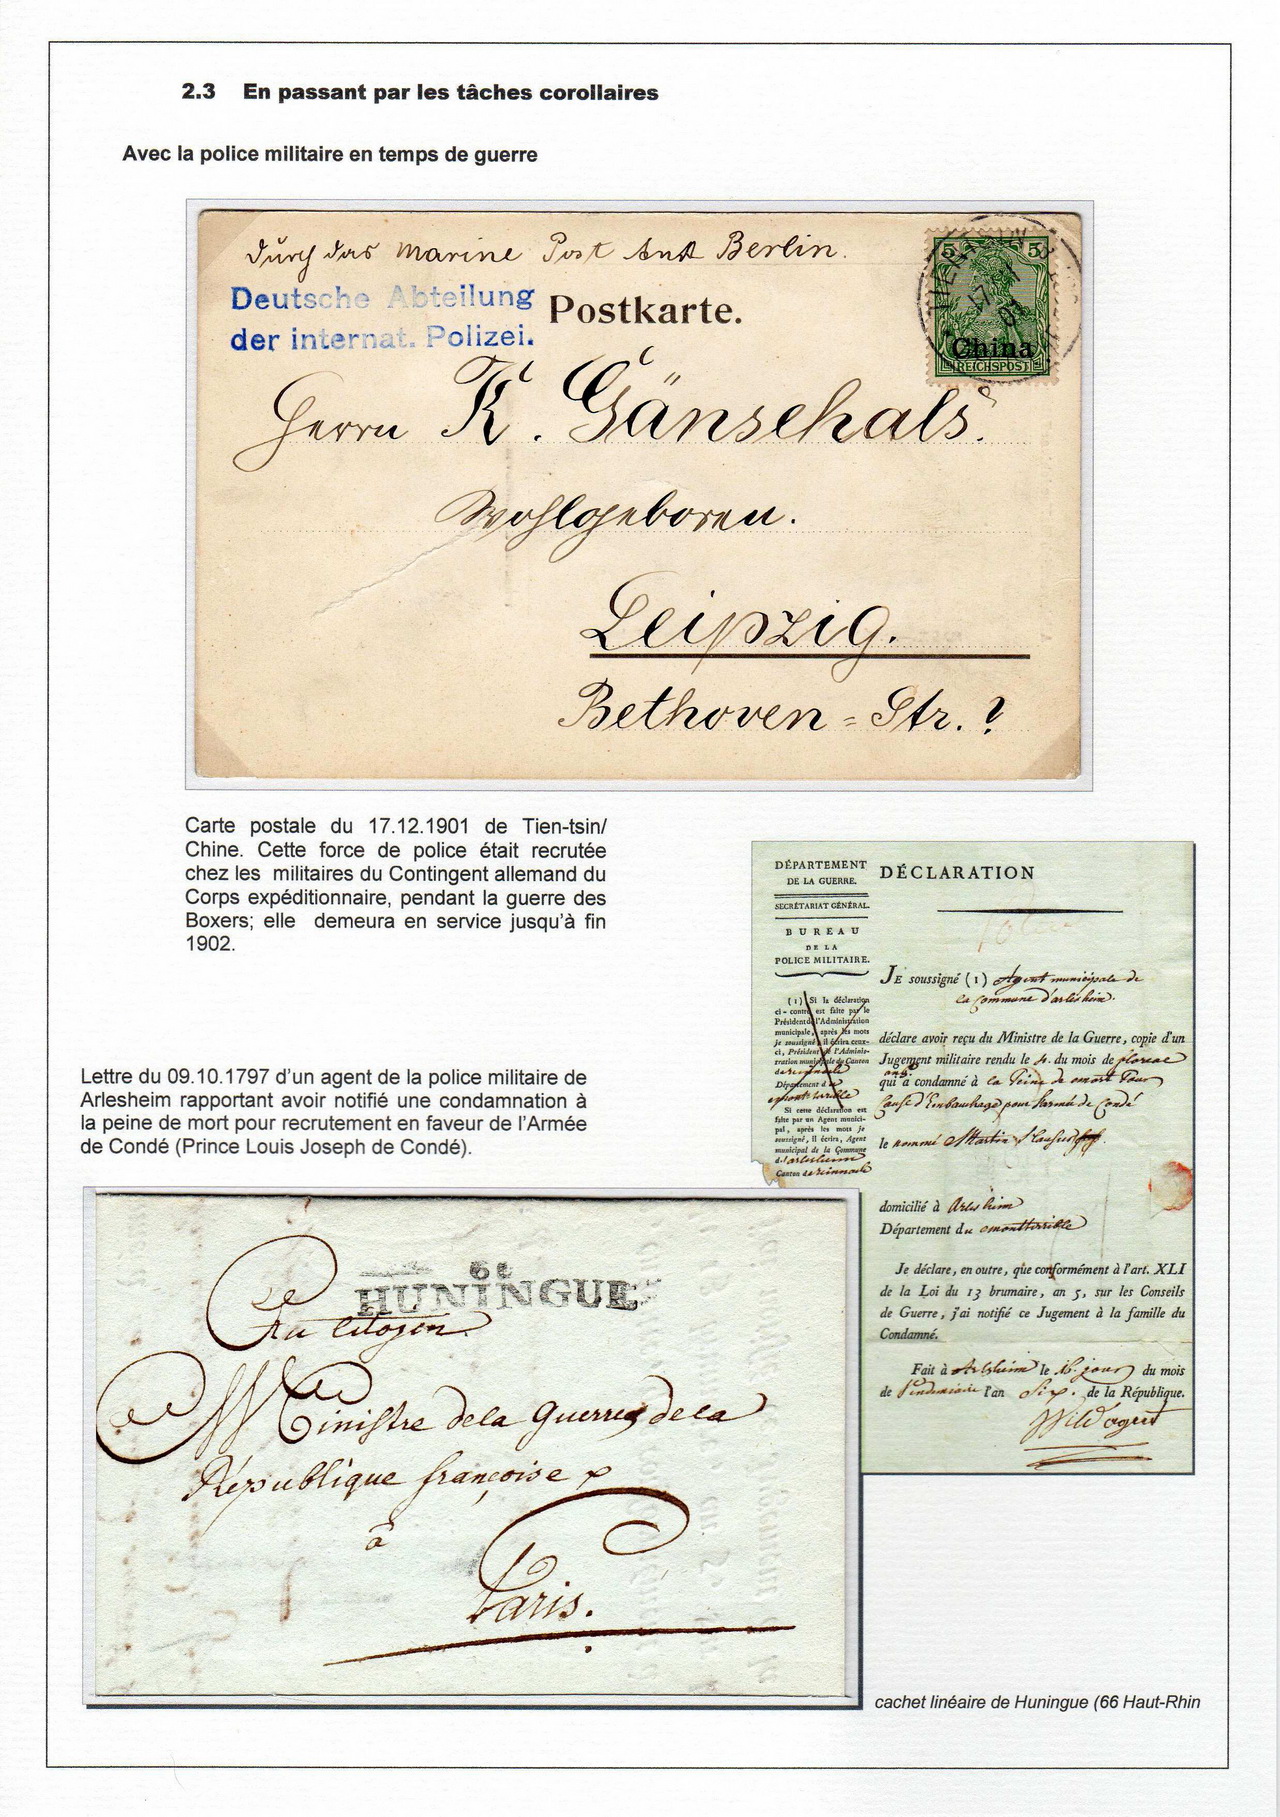 2.3 En passant par les tâches corollaires
Avec la police militaire en temps de guerre
durch das Marine Post Amt Berlin.
Deutsche Abteilung
der internat. Polizei.
Postkarte.
5 5
China
REICHSPOST
Herrn K. Gänsehals.
Wohlgeboren.
Leipzig.
Bethoven-Str. ?
Carte postale du 17.12.1901 de Tien-tsin/
Chine. Cette force de police était recrutée
chez les militaires du Contingent allemand du
Corps expéditionnaire, pendant la guerre des
Boxers; elle demeura en service jusqu'à fin
1902.
DÉPARTEMENT
DE LA GUERRE.
SECRÉTARIAT GÉNÉRAL.
BUREAU
DE LA
POLICE MILITAIRE.
(1) Si la déclaration
ci-contre est faite par le
Président de l'Administration
municipale, après les mots
je soussigné, il écrira ceux-
ci, Président de l'Adminis-
tration municipale du Canton
de
Département d
Si cette déclaration est
faite par un Agent munici-
pal, après les mots je
soussigné, il écrira, Agent
municipal de la Commune
d'arlesheim
Canton de reinnach
DÉCLARATION
JE soussigné (1) Agent municipale de
la Commune d'arlesheim.
déclare avoir reçu du Ministre de la Guerre, copie d'un
Jugement militaire rendu le 4. du mois de floreal
qui a condamné à la Peine de mort Pour
Cause d'Embauchage pour l'armée de Condé
le nommé Martin
domicilié à Arlesheim
Département du montterrible
Je déclare, en outre, que conformément à l'art. XLI
de la Loi du 13 brumaire, an 5, sur les Conseils
de Guerre, j'ai notifié ce Jugement à la famille du
Condamné.
Fait à Arlesheim le 18. jour du mois
de Vendemiaire l'an Six. de la République.
Lettre du 09.10.1797 d'un agent de la police militaire de
Arlesheim rapportant avoir notifié une condamnation à
la peine de mort pour recrutement en faveur de l'Armée
de Condé (Prince Louis Joseph de Condé).
66
HUNINGUE
Au Citoyen
Ministre de la Guerre de la
République françoise
à
Paris.
cachet linéaire de Huningue (66 Haut-Rhin